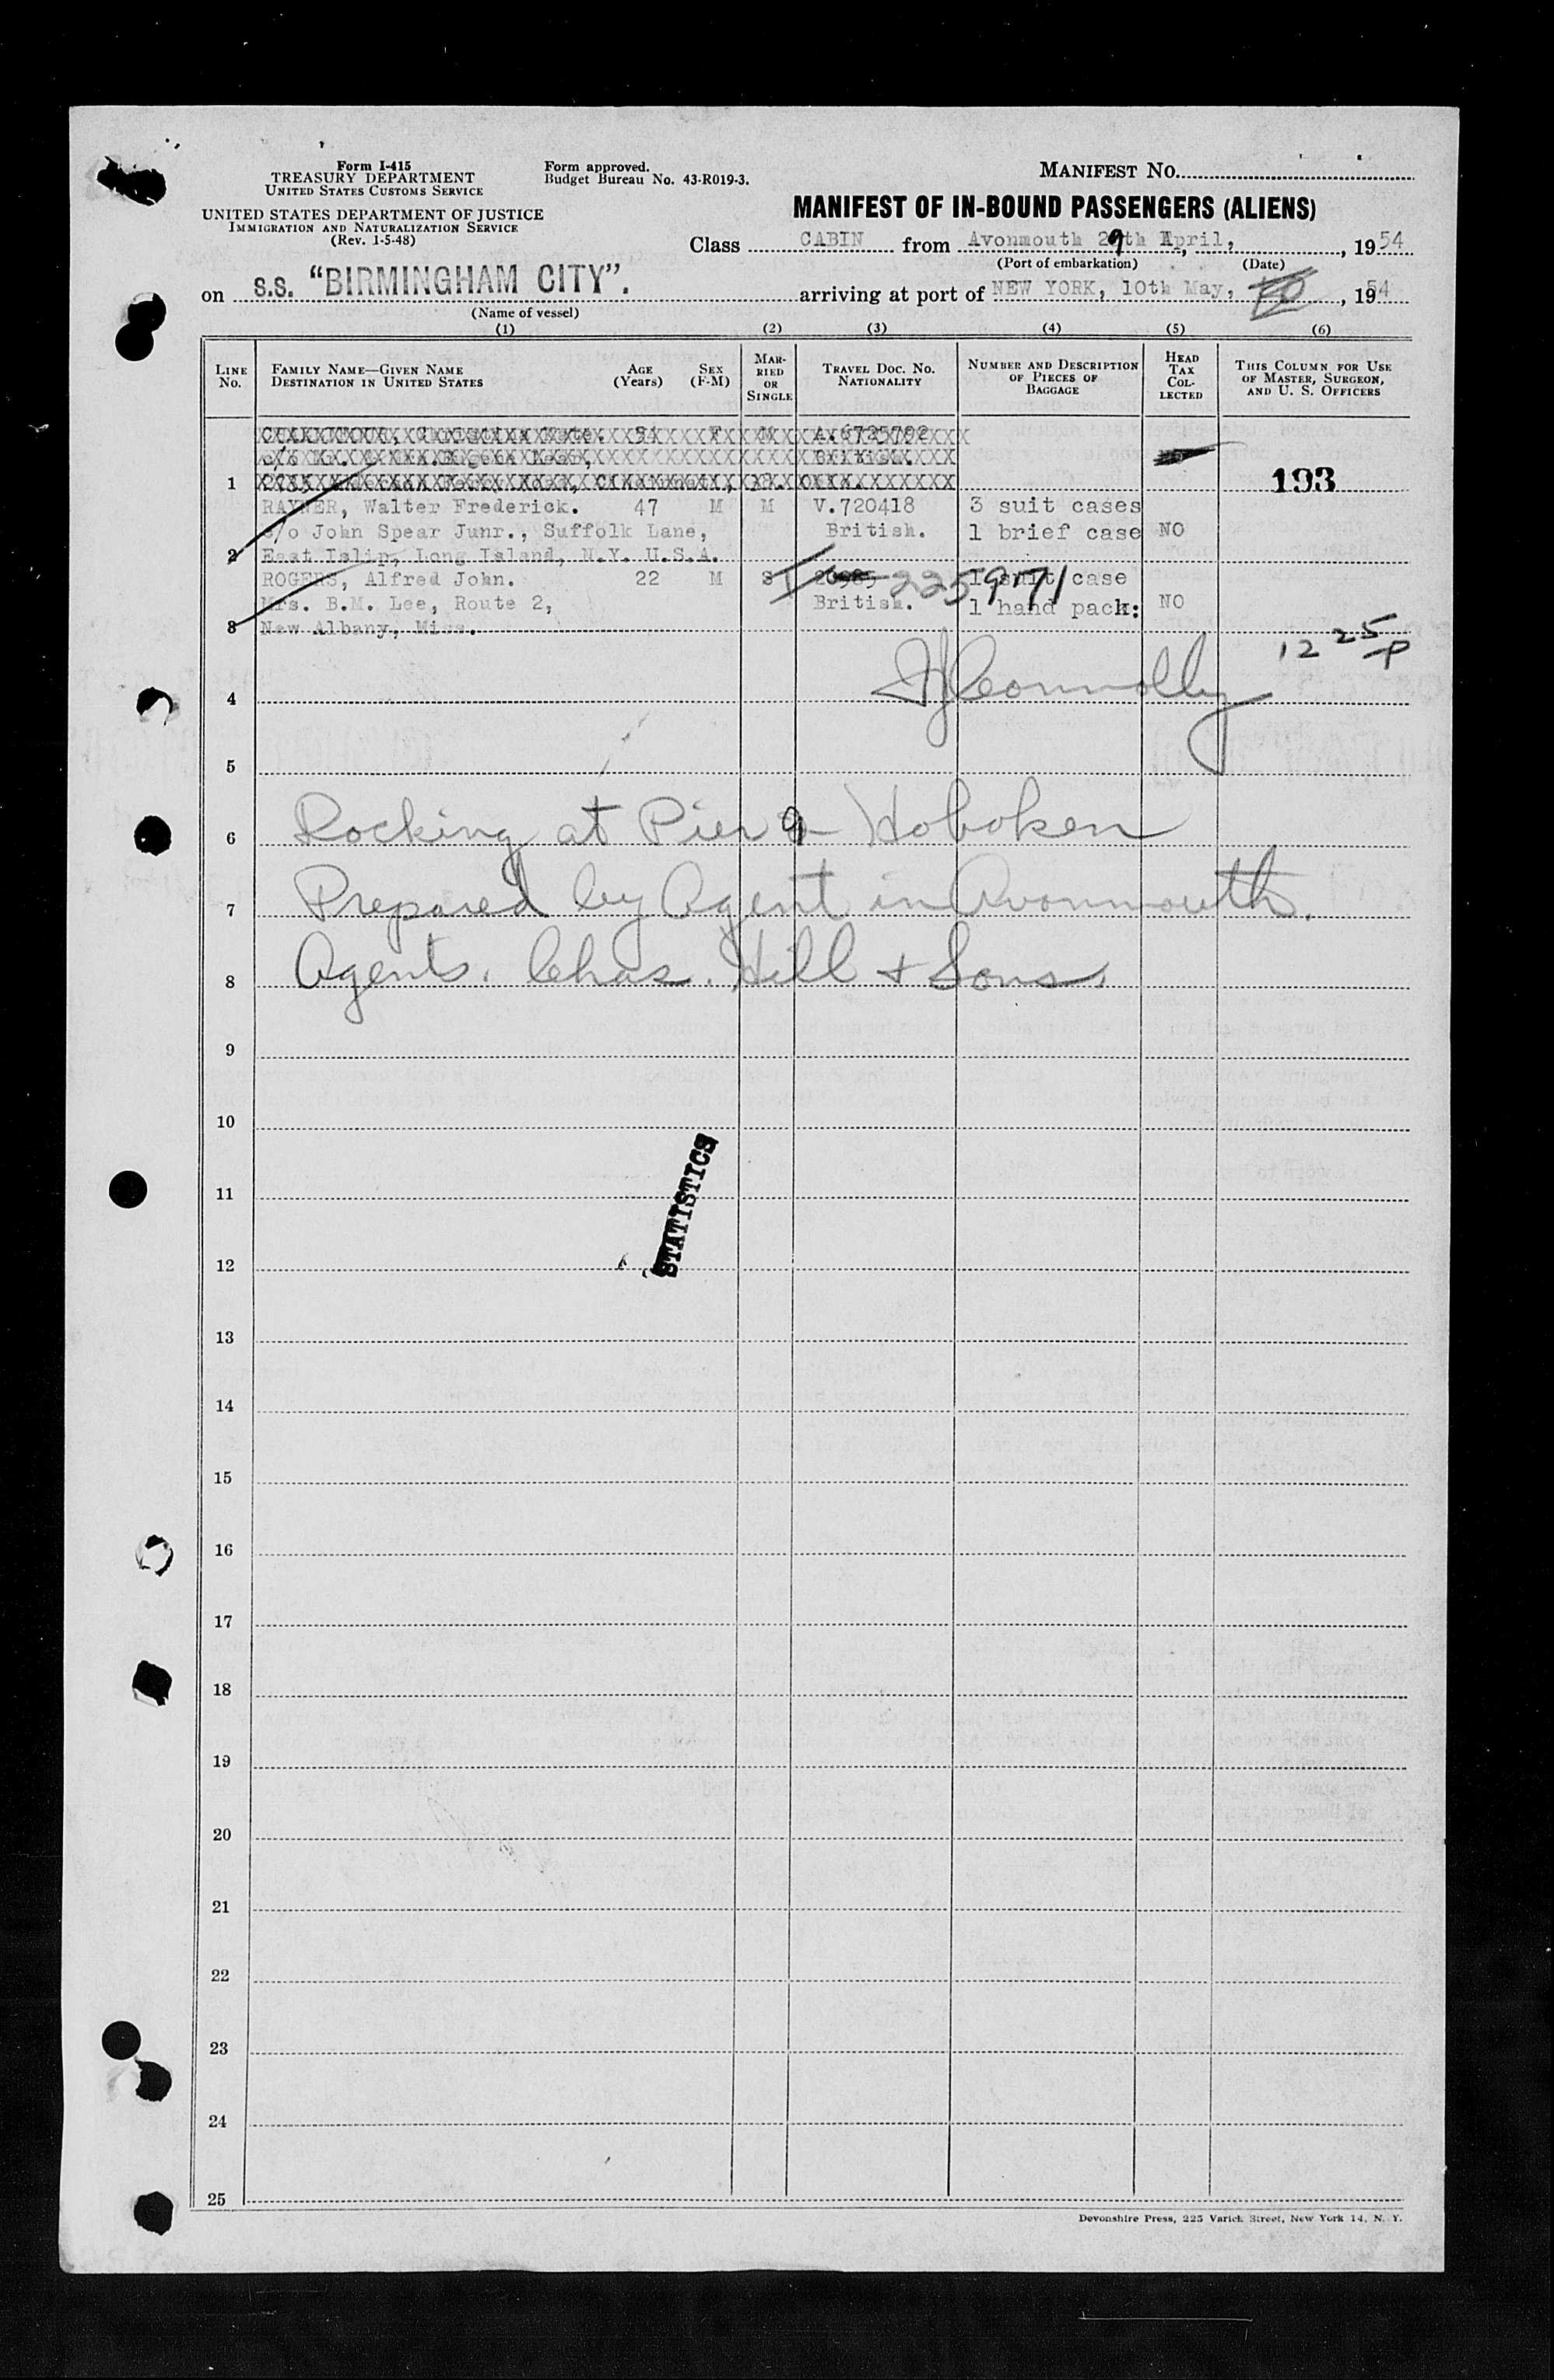 Form I-415
TREASURY DEPARTMENT
UNITED STATES CUSTOMS SERVICE
UNITED STATES DEPARTMENT OF JUSTICE
IMMIGRATION AND NATURALIZATION SERVICE
(Rev. 1-5-48)
Form approved.
Budget Bureau No. 43-R019-3.
MANIFEST NO.
MANIFEST OF IN-BOUND PASSENGERS (ALIENS)
Class CABIN from Avonmouth 29th April, , 1954
(Port of embarkation) (Date)
on S.S. "BIRMINGHAM CITY". arriving at port of NEW YORK, 10th May, , 1954
(Name of vessel)
(1) (2) (3) (4) (5) (6)
LINE No. FAMILY NAME—GIVEN NAME DESTINATION IN UNITED STATES AGE (Years) SEX (F-M) MARRIED OR SINGLE TRAVEL DOC. NO. NATIONALITY NUMBER AND DESCRIPTION OF PIECES OF BAGGAGE HEAD TAX COLLECTED THIS COLUMN FOR USE OF MASTER, SURGEON, AND U. S. OFFICERS
54 F M A.6725792
British.
1 193
RAYNER, Walter Frederick. 47 M M V.720418 3 suit cases
c/o John Spear Junr., Suffolk Lane, British. 1 brief case NO
2 East Islip, Long Island, N.Y. U.S.A.
ROGERS, Alfred John. 22 M S 20985 225971 1 suit case
Mrs. B.M. Lee, Route 2, British. 1 hand pack: NO
3 New Albany, Miss.
12 25 P
4 Connolly
5
6 Docking at Pier 9 Hoboken
7 Prepared by Agent in Avonmouth.
8 Agents. Chas. Hill + Sons.
9
10
11
STATISTICS
12
13
14
15
16
17
18
19
20
21
22
23
24
25
Devonshire Press, 225 Varick Street, New York 14, N. Y.